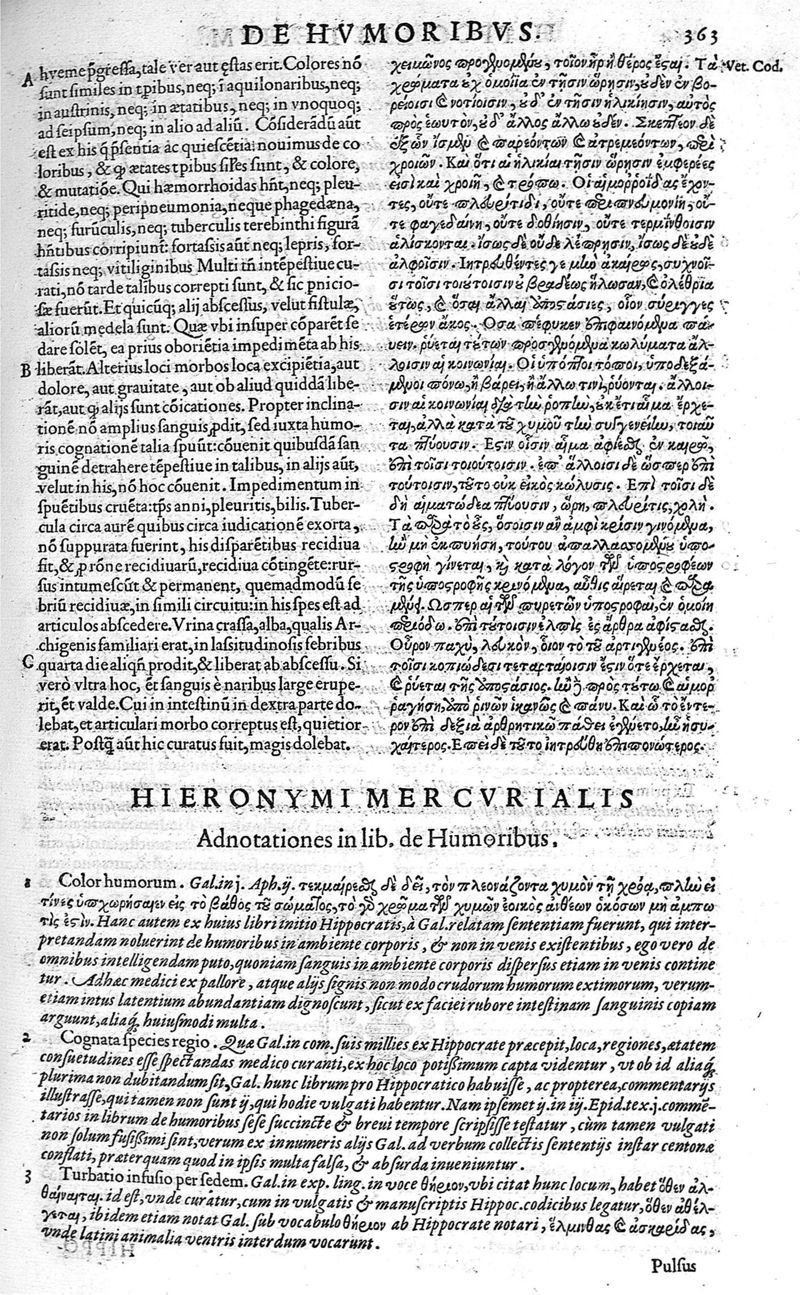 DE HVMORIBVS.
363
A hyeme p̄gressa, tale ver aut ęstas erit. Colores nō
sunt similes in tp̄ibus, neq; ī aquilonaribus, neq;
in austrinis, neq; in ætatibus, neq; in vnoquoq;
ad seipsum, neq; in alio ad aliū. Cōsiderādū aūt
est ex his q̄ p̄sentia ac quiescētia: nouimus de co
loribus, &
& mutatiōe. Qui hæmorrhoidas hn̄t, neq; pleu-
ritide, neq; peripneumonia, neque phagedæna,
neq; furūculis, neq; tuberculis terebinthi figurā
hn̄tibus corripiunt: fortassis aūt neq; lepris, for-
tassis neq; vitiliginibus Multi tn̄ intēpestiue cu-
rati, nō tarde talibus correpti sunt, & sic p̱nicio-
sæ fuerūt. Et quicūq; alij abscessus, velut fistulæ,
aliorū medela sunt. Quæ vbi insuper cōparēt se
dare solēt, ea prius oboriētia impedimēta ab his
B liberāt. Alterius loci morbos loca excipiētia, aut
dolore, aut grauitate, aut ob aliud quiddā libe-
rāt, aut alijs sunt cōicationes. Propter inclina-
tionē nō amplius sanguis p̱dit, sed iuxta humo-
ris cognationē talia spuūt: cōuenit quibusdā san
guinē detrahere tēpestiue in talibus, in alijs aūt,
velut in his, nō hoc cōuenit. Impedimentum in
spuētibus cruēta: tp̄s anni, pleuritis, bilis. Tuber-
cula circa aurē quibus circa iudicationē exorta,
nō suppurata fuerint, his disparētibus recidiua
fit, & p̱ rōne recidiuarū, recidiua cōtingēte: rur-
sus intumescūt & permanent, quemadmodū fe
briū recidiuæ, in simili circuitu: in his spes est ad
articulos abscedere. Vrina crassa, alba, qualis Ar-
chigenis familiari erat, in lassitudinosis febribus
C quarta die aliqn̄ prodit, & liberat ab abscessu. Si
verò vltra hoc, ēt sanguis è naribus large erupe-
rit, ēt valde. Cui in intestinū in dextra parte do-
lebat, et articulari morbo correptus est, quietior
erat. Postq̄ aūt hic curatus fuit, magis dolebat.
χειμῶνος προγενομένου, τοῖον ἦρ ἢ θέρος ἔςαι. Τὰ Vet. Cod.
χρώματα οὐχ ὁμοῖα ἐν τῇσιν ὥρῃσιν, οὐδὲν ἐν βο-
ρείοισι καὶ νοτίοισιν, οὐδ' ἐν τῇσιν ἡλικίῃσιν, αὐτὸς
πρὸς ἑωυτὸν, οὐδ' ἄλλος ἄλλῳ οὐδέν. Σκεπτέον δὲ
ἐξ ὧν ἴσμεν καὶ παρεόντων καὶ ἀτρεμεόντων, περὶ
χροιῶν. Καὶ ὅτι αἱ ἡλικίαι τῇσιν ὥρῃσιν ἐμφερέες
εἰσὶ καὶ χροιῇ, καὶ τρόπῳ. Οἱ αἱμοῤῥοΐδας ἔχον-
τες, οὔτε πλευρίτιδι, οὔτε περιπνευμονίῃ, οὔ-
τε φαγεδαίνῃ, οὔτε δοθιῆσιν, οὔτε τερμίνθοισιν
ἁλίσκονται. ἴσως δὲ οὐδὲ λέπρῃσιν, ἴσως δὲ οὐδὲ
ἀλφοῖσιν. Ἰητρευθέντες γε μὴν ἀκαίρως, συχνοῖ-
σι τοῖσι τοιούτοισιν οὐ βραδέως ἥλωσαν, καὶ ὀλέθρια
οὕτως, καὶ ὅσαι ἄλλαι ἀποςάσιες, οἷον σύριγγες
ἑτέρων ἄκος. Ὅσα πέφυκεν ἐπιφαινόμενα παύ-
ειν. ῥύεται τούτων προσγενόμενα κωλύματα ἄλ-
λοισιν αἱ κοινωνίαι. Οἱ ὕποπτοι τόποι, ὑποδεξά-
μενοι πόνῳ, ἢ βάρει, ἢ ἄλλῳ τινὶ, ῥύονται. ἄλλοι-
σιν αἱ κοινωνίαι διὰ τὴν ῥοπὴν, οὐκέτι αἷμα ἔρχε-
ται, ἀλλὰ κατὰ τοῦ χυμοῦ τὴν συγγενείην, τοιαῦ
τα πτύουσιν. Ἔςιν οἷσιν αἷμα ἀφίεσθαι ἐν καιρῷ,
ἐπὶ τοῖσι τοιούτοισιν. ἐπ' ἄλλοισι δὲ ὥσπερ ἐπὶ
τούτοισιν, τοῦτο οὐκ εἰκὸς κώλυσις. Ἐπὶ τοῖσι δὲ
δὴ αἱματώδεα πτύουσιν, ὥρη, πλευρῖτις, χολή.
Τὰ παρὰ τὸ οὖς, ὅσοισιν ἂν ἀμφὶ κρίσιν γινόμενα,
ἢν μὴ ἐκπυήσῃ, τούτου ἀπαλλασσομένου ὑπο-
ςροφὴ γίνεται, καὶ κατὰ λόγον τῶν ὑποςροφέων
τῆς ὑποςροφῆς κρινόμενα, αὖθις αἴρεται καὶ παρα
μένει. Ὥσπερ αἱ τῶν πυρετῶν ὑποςροφαὶ, ἐν ὁμοίῃ
περιόδῳ. ἐπὶ τούτοισιν ἐλπὶς ἐς ἄρθρα ἀφίςασθαι.
Οὖρον παχὺ, λευκὸν, οἷον τὸ τοῦ ἀρτιγένεος. ἐπὶ
τοῖσι κοπιώδεσι τεταρταίοισιν ἔςιν ὅτε ἔρχεται,
καὶ ῥύεται τῆς ἀποςάσιος. ἢν δὲ πρὸς τούτῳ καὶ αἱμοῤ
ῥαγήσῃ, ἀπὸ ῥινῶν ἱκανῶς καὶ πάνυ. Καὶ ᾧ τὸ ἔντε-
ρον ἐπὶ δεξιὰ ἀρθρητικῷ πάθει ἐγένετο, ἦν ἡσυ-
χαίτερος. Ἐπεὶ δὲ τοῦτο ἰητρεύθη ἐπιπονώτερος.
HIERONYMI MERCVRIALIS
Adnotationes in lib. de Humoribus.
1 Color humorum. Gal. in j. Aph. ij. τεκμαίρεσθαι δὲ δεῖ, τὸν πλεονάζοντα χυμὸν τῇ χρόᾳ, πλὴν εἰ
τίνες ὑπεχώρησαν εἰς τὸ βάθος τοῦ σώματος, τὸ γὰρ χρῶμα τῶν χυμῶν ἐοικὸς ἀνθέων ὁκόσων μὴ ἄμπω
τις ἐςίν. Hanc autem ex huius libri initio Hippocratis, à Gal. relatam sententiam fuerunt, qui inter-
pretandam noluerint de humoribus in ambiente corporis, & non in venis existentibus, ego vero de
omnibus intelligendam puto, quoniam sanguis in ambiente corporis dispersus etiam in venis contine
tur. Adhæc medici ex pallore, atque alijs signis non modo crudorum humorum extimorum, verum-
etiam intus latentium abundantiam dignoscunt, sicut ex faciei rubore intestinam sanguinis copiam
arguunt, aliaq; huiusmodi multa.
2 Cognata species regio. Quæ Gal. in com. suis millies ex Hippocrate præcepit, loca, regiones, ætatem
consuetudines esse spectandas medico curanti, ex hoc loco potissimum capta videntur, vt ob id aliaq;
plurima non dubitandum sit, Gal. hunc librum pro Hippocratico habuisse, ac propterea, commentarijs
illustrasse, qui tamen non sunt ij, qui hodie vulgati habentur. Nam ipsemet ij. in iij. Epid. tex. j. commē-
tarios in librum de humoribus sese succincte & breui tempore scripsisse testatur, cùm tamen vulgati
non solum fusissimi sint, verum ex innumeris alijs Gal. ad verbum collectis sententijs instar centonæ
conflati, præterquam quod in ipsis multa falsa, & absurda inueniuntur.
3 Turbatio infusio per sedem. Gal. in exp. ling. in voce θήριον, vbi citat hunc locum, habet ὅθεν ἀλ-
θαίνονται. id est, vnde curatur, cum in vulgatis & manuscriptis Hippoc. codicibus legatur, ὅθεν ἀθέλ-
γεται, ibidem etiam notat Gal. sub vocabulo θήριον ab Hippocrate notari, ἕλμινθας καὶ ἀσκαρίδας,
vnde latini animalia ventris interdum vocarunt.
Pulsus